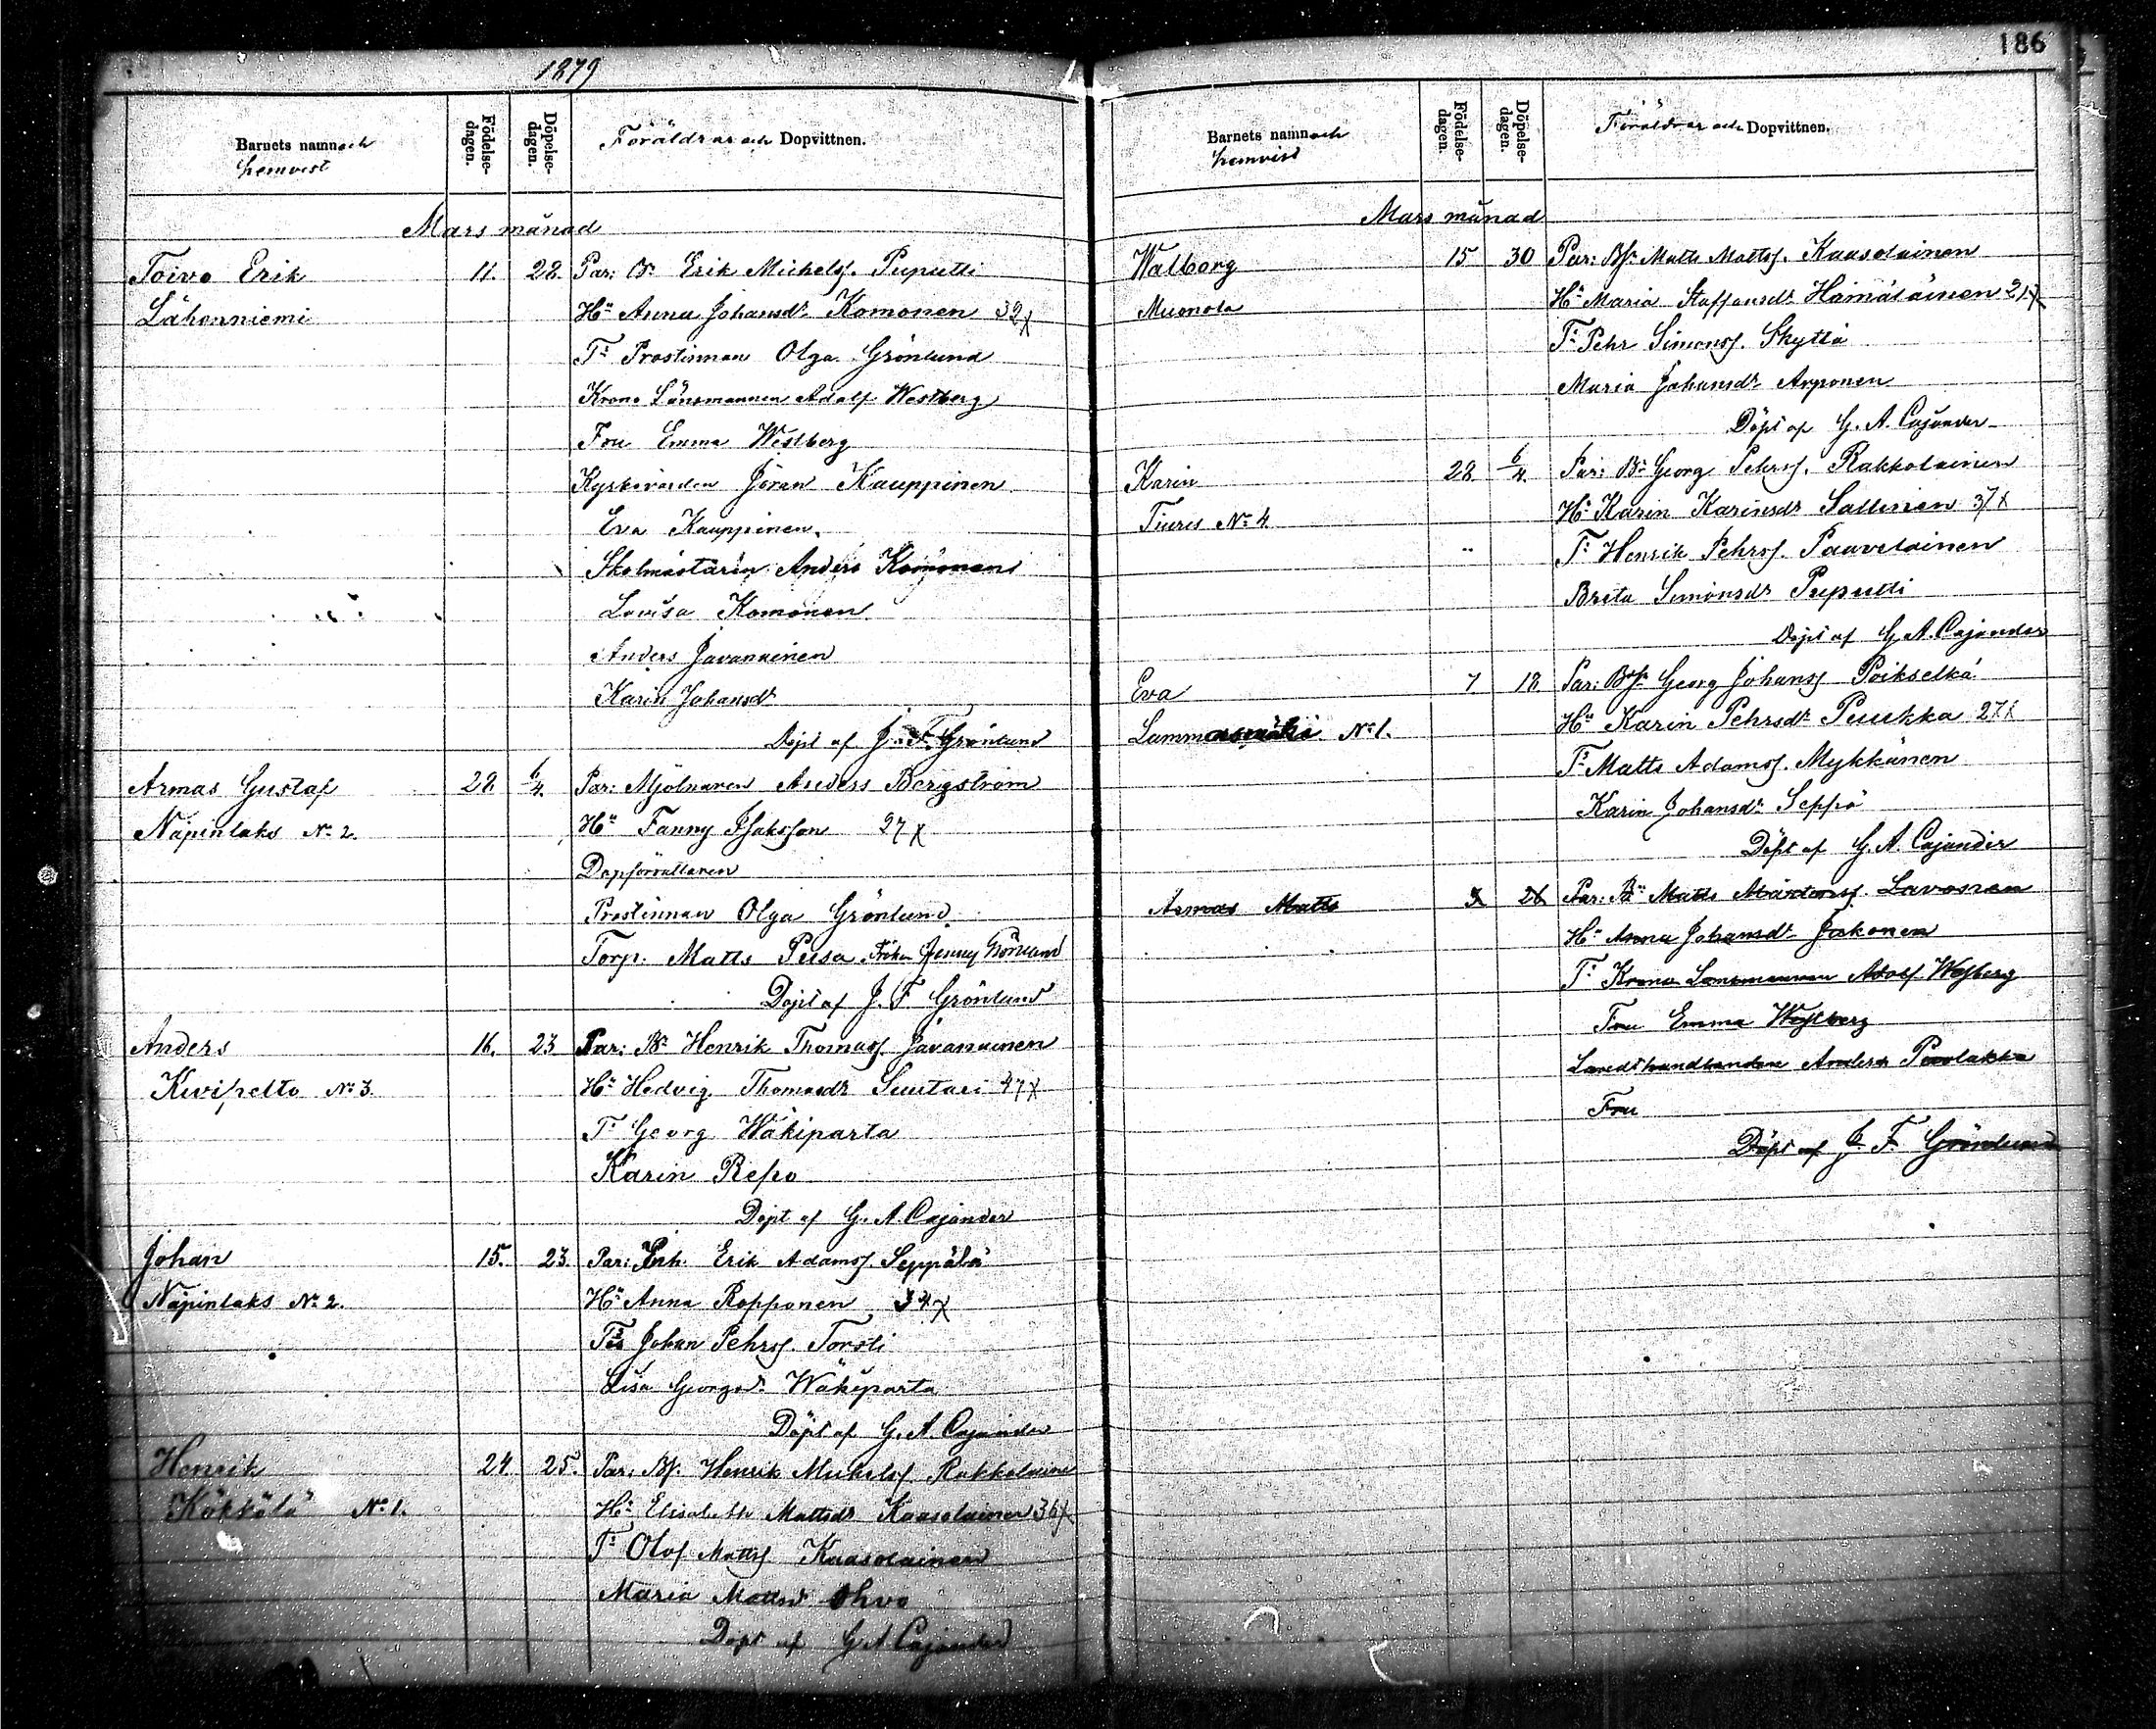 1879
Barnets namn och hemvist
Födelse-dagen.
Döpelse-dagen.
Föräldrar och Dopvittnen.
Mars månad
Toivo Erik 11. 28. Par: Bn Erik Michelss. Puputti
Lähenniemi Hu Anna Johansdr Komonen 32
Tr Prostinnan Olga Grönlund
Krono Länsmannen Adolf Westberg
Fru Emma Westberg
Kyrkovärden Jöran Kauppinen
Eva Kauppinen.
Skolmästarin Anders Komonen
Lovisa Komonen.
Anders Javanainen
Karin Johansdr
Döpt af J. F. Grönlund
Armas Gustaf 28 6/4. Par: Mjölnaren Anders Bergström
Näpinlaks No 2. Hu Fanny Isaksson 27
Dopförrättaren
Prostinnan Olga Grönlund
Torp. Matts Pusa Fröken Jenny Grönlund
Döpt af J. F. Grönlund
Anders 16. 23 Par: Bn Henrik Thomass. Javanainen
Kivipelto No 3. Hu Hedvig Thomasdr Suutari 27
Tr Georg Wäkiparta
Karin Repo
Döpt af G. A. Cajander
Johan 15. 23. Par: Inh. Erik Adamss. Seppälä
Näpinlaks No 2. Hu Anna Ropponen 34
Tr Johan Pehrss. Torsti
Lisa Georgsdr Wäkiparta
Döpt af G. A. Cajander
Henrik 24 25. Par: Bs. Henrik Michelss. Rakkolainen
Käkkölä No 1. Hu Elisabeth Mattsdr Kaasolainen 36
Tr Olof Mattss. Kaasolainen
Maria Mattsdr Ohvo
Döpt af G A Cajander
186
Barnets namn och hemvist
Födelse-dagen.
Döpelse-dagen.
Föräldrar och Dopvittnen.
Mars månad
Walborg 15 30 Par: Bs. Matts Mattss. Kaasolainen
Mumola Hu Maria Staffansdr Hämäläinen 21
Tr Pehr Simonss. Skyttä
Maria Johansdr Arponen
Döpt af G. A. Cajander
Karin 28 6/4. Par: Bn Georg Pehrss. Rakkolainen
Tiuris No 4 Hu Karin Karinsdr Sallinen 37
Tr Henrik Pehrss. Paavolainen
Brita Simonsdr Puputti
Döpt af G. A. Cajander
Eva 7 18 Par: Bs. Georg Johanss Poikselkä
No 1. Hu Karin Pehrsdr Puukka 27
Tr Matts Adamss. Mykkänen
Karin Johansdr Seppä
Döpt af G. A. Cajander
Armas Matts 3 28 Par: Bn Matts Mårtenss. Lavonen
Hu Anna Johansdr Jakonen
Tr Krono Länsmannen Adolf Westberg
Fru Emma Westberg
Landthandlanden Anders
Fru
Döpt af J. F. Grönlund